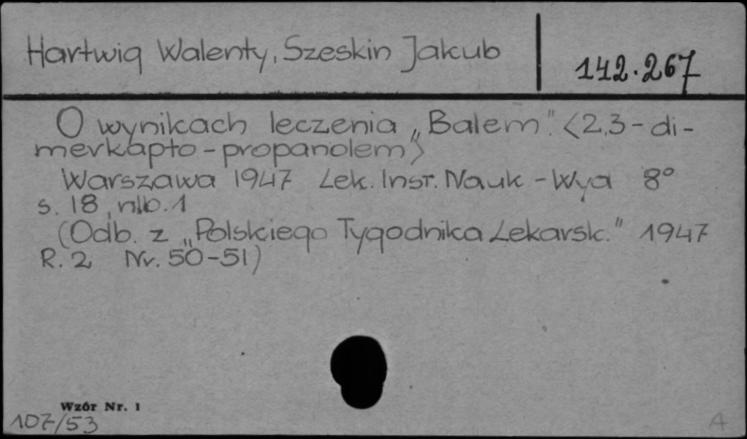 Hartwig Walenty, Szeskin Jakub
142.267
O wynikach leczenia „Balem". <2,3-di-
merkapto-propanolem>
Warszawa 1947 Lek. Inst. Nauk-Wyd 8°
s. 18, nlb. 1
(Odb. z „Polskiego Tygodnika Lekarsk." 1947
R. 2 Nr. 50-51)
Wzór Nr. 1
107/53
A